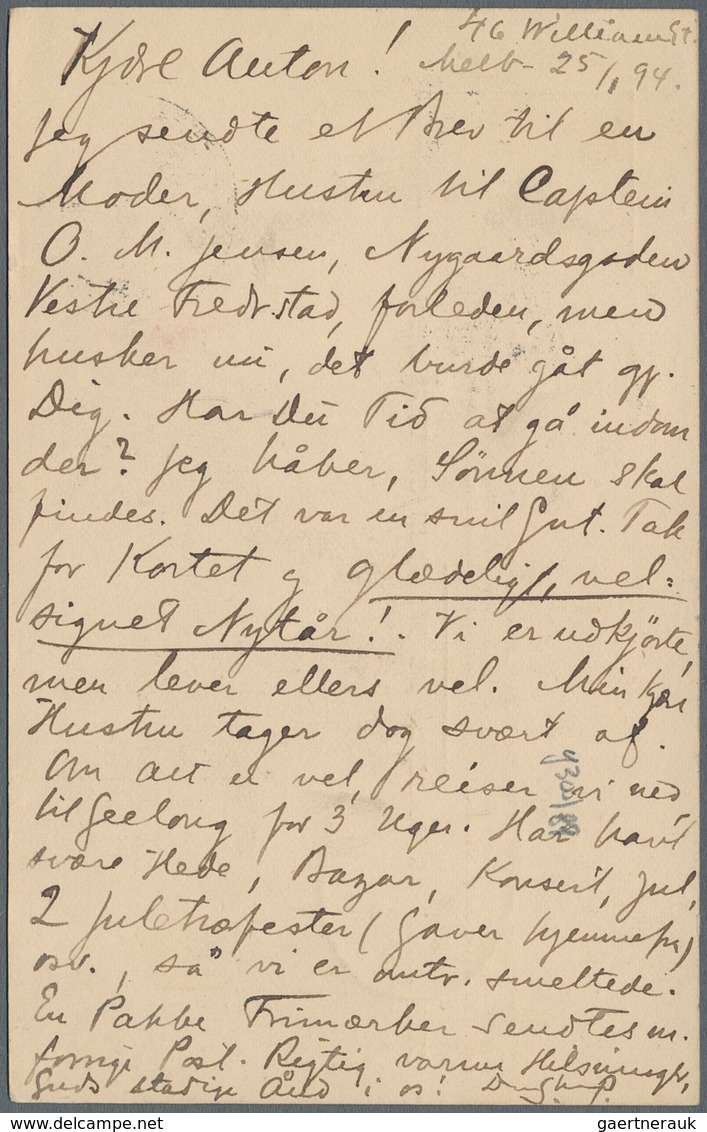 46 William St.
Melb - 25/1 94.
Kjære Anton!
Jeg sendte et Brev til en
Moder, Hustru til Captein
O. M. Jensen, Nygaardsgaden
Vestre Fredr.stad, forleden, men
husker nu, det burde gåt gj.
Dig. Har Du Tid at gå indom
der? Jeg håber, Sönnen skal
findes. Det var en snil Gut. Tak
for Kortet og glædelig, vel=
signet Nytår! . Vi er udkjörte,
men lever ellers vel. Min kjære
Hustru tager dog svært af.
Om alt er vel, reiser vi ned
til Geelong for 3 Uger. Har havt
svære Hede, Bazar, Konsert, Jul,
2 Juletræfester (Gaver hjemmefra)
osv., så vi er omtr. smeltede.
En Pakke Frimærker sendtes m.
forrige Post. Rigtig varme Hilsninger,
Guds stadige Ånd i os!
gaertnerauk